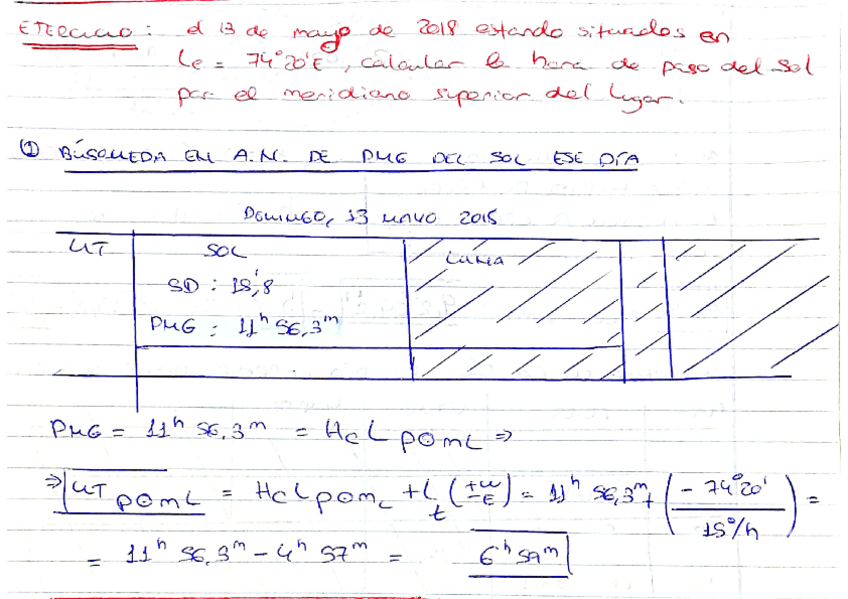 EJERCICIO: el 13 de mayo de 2018 estando situados en
Le = 74°20'E, calcular la hora de paso del Sol
por el meridiano superior del lugar.
① BÚSQUEDA EN A.N. DE PMG DEL SOL ESE DÍA
DOMINGO, 13 MAYO 2015
UT SOL LUNA
SD : 15',8
PMG : 11ʰ 56,3ᵐ
PMG = 11ʰ 56,3ᵐ = HcL p⊙mL ⇒
⇒ UT p⊙mL = HcL p⊙mL + Lt (+W -E) = 11ʰ 56,3ᵐ + (-74°20' / 15°/h) =
= 11ʰ 56,3ᵐ - 4ʰ 57ᵐ = 6ʰ 59ᵐ